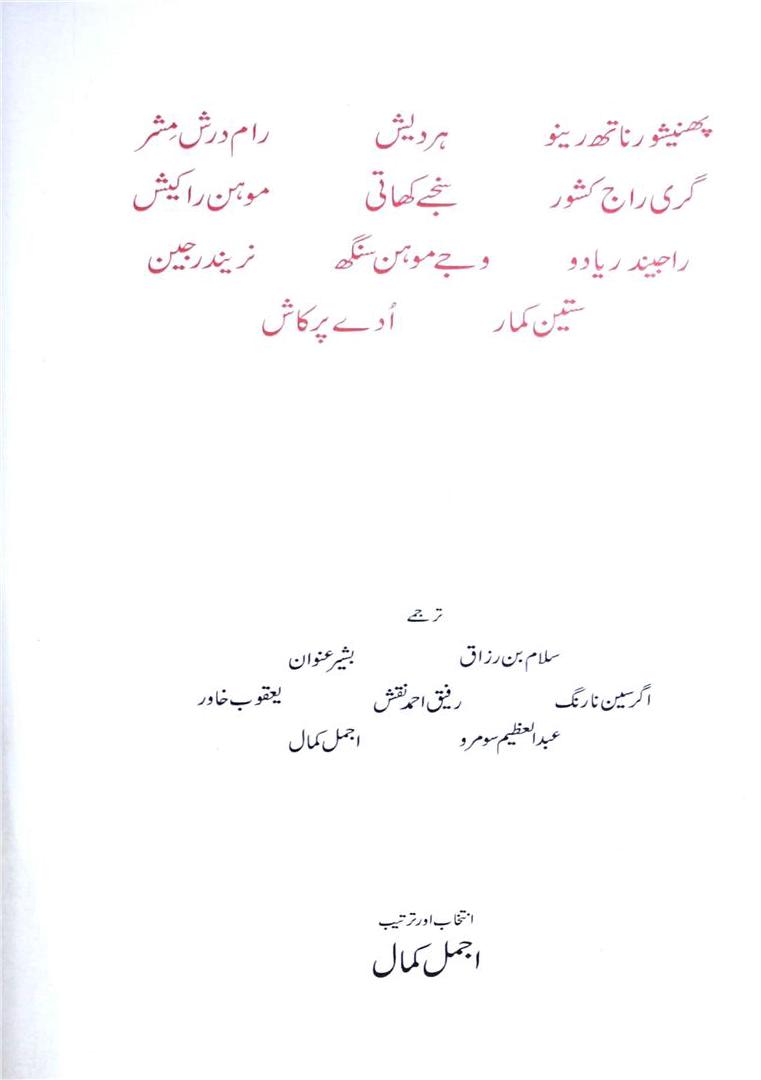 پھنیشور ناتھ رینو ہردیش رام درش مِشر
گری راج کشور سنجے کھاتی موہن راکیش
راجیندر یادو وجے موہن سنگھ نریندر جین
ستین کمار اُدے پرکاش
ترجمے
سلام بن رزاق بشیر عنوان
اگرسین نارنگ رفیق احمد نقش یعقوب خاور
عبدالعظیم سومرو اجمل کمال
انتخاب اور ترتیب
اجمل کمال